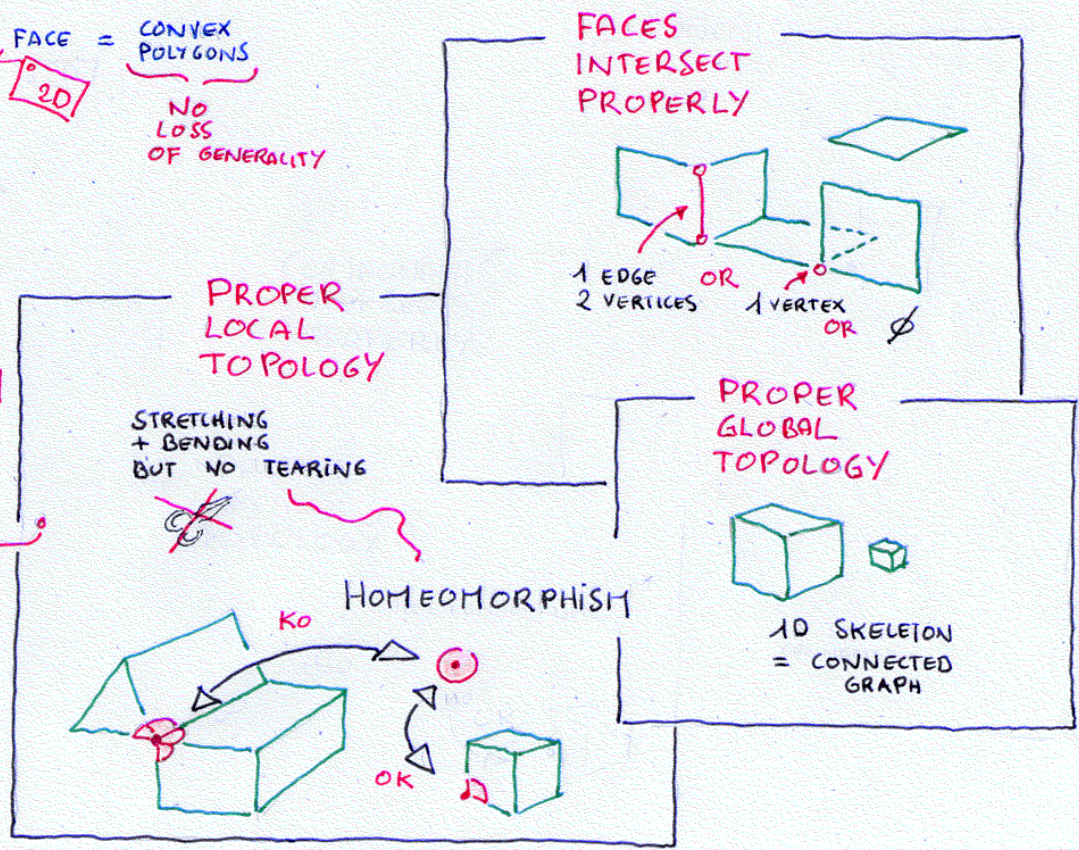 FACE = CONVEX
POLYGONS
2D
NO
LOSS
OF GENERALITY
FACES
INTERSECT
PROPERLY
1 EDGE
2 VERTICES
OR
1 VERTEX
OR
∅
PROPER
LOCAL
TOPOLOGY
STRETCHING
+ BENDING
BUT NO TEARING
HOMEOMORPHISM
KO
OK
PROPER
GLOBAL
TOPOLOGY
1D SKELETON
= CONNECTED
GRAPH